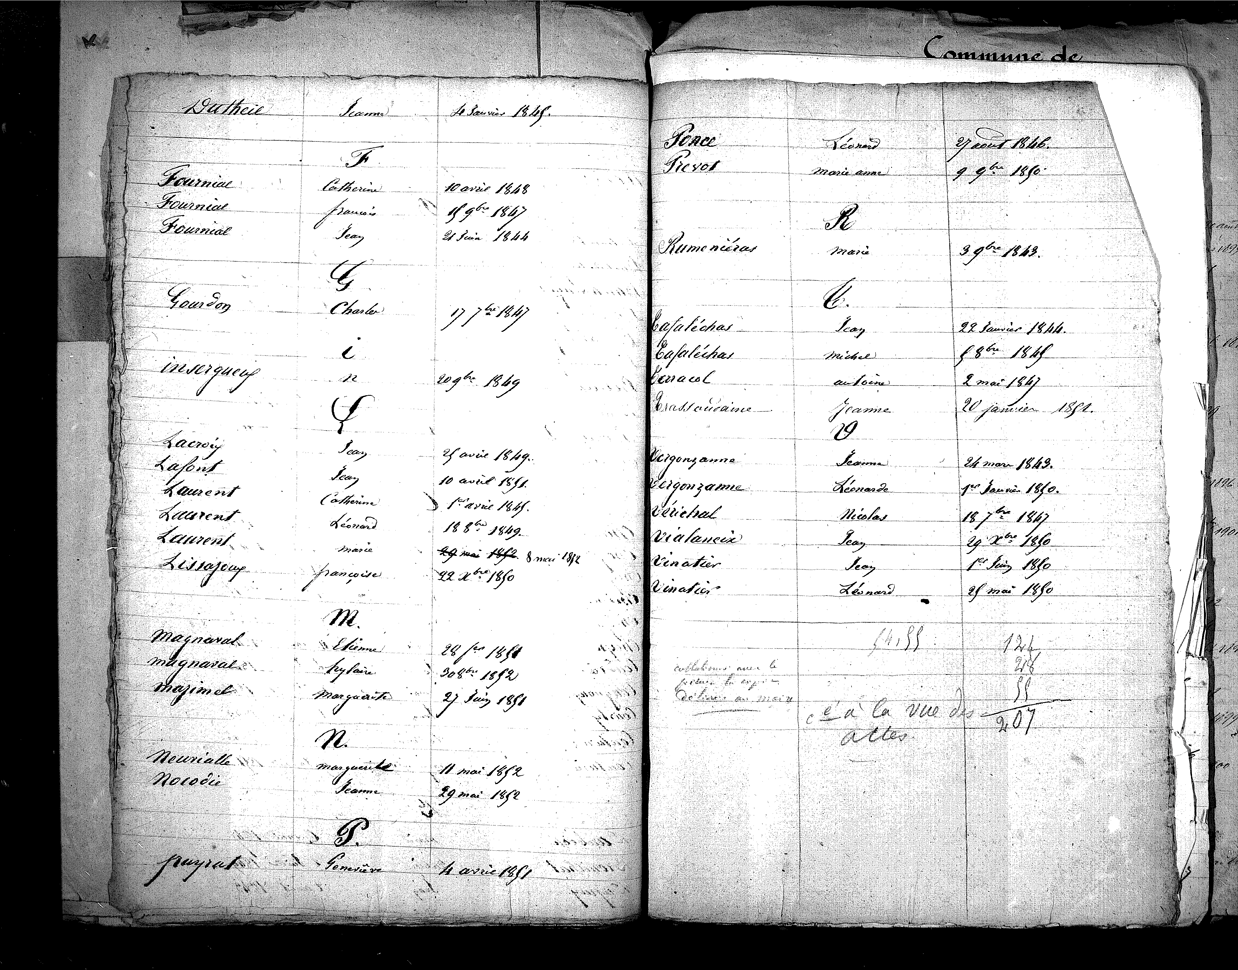 Dutheil Jeanne 4 Janvier 1845.
F
Fournial Catherine 10 avril 1848
Fournial françois 15 9bre 1847
Fournial Jean 21 Juin 1844
G
Gourdon Charles 17 7bre 1847
i
insergueux n 20 9bre 1849
L
Lacroix Jean 25 avril 1849.
Lafont Jean 10 avril 1851.
Laurent Catherine 1er avril 1845.
Laurent Léonard 18 8bre 1849.
Laurent marie 29 mai 1852 8 mai 1852
Lissajoux françoise 22 Xbre 1850
M.
magnaval Etienne 28 1851
magnaval hylaire 30 8bre 1852
mazimel marguerite 27 Juin 1851
N.
Neurialle marguerite 11 mai 1852
Jeanne 29 mai 1852
P.
peyrat Geneviève 4 avril 1851
Commune de
Ponce Léonard 27 août 1846.
Prevot marie anne 9 9bre 1850.
R
Rumeniéras marie 3 9bre 1843.
T.
Tafaléchas Jean 22 Janvier 1844.
Tafaléchas michel 5 8bre 1845
Terracol antoine 2 mai 1847
Trassoudaine Jeanne 20 janvier 1852.
V
Vergonzanne Jeanne 24 mars 1843.
Vergonzanne Léonarde 1er Janvier 1850.
Vérichal Nicolas 18 7bre 1847
Vialaneix Jean 29 Xbre 1850
Vinatier Jean 1er Juin 1850
Vinatier Léonard 25 mai 1850
54, 55
124
28
55
207
collationné avec le
délivré au maire
cé à la vue des
actes.